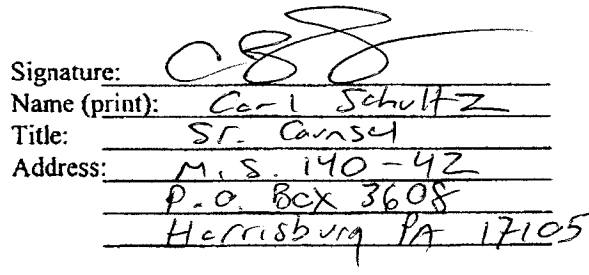 Signature:
Name (print): Carl Schultz
Title: Sr. Counsel
Address: M.S. 140-42
P.O. Box 3608
Harrisburg PA 17105